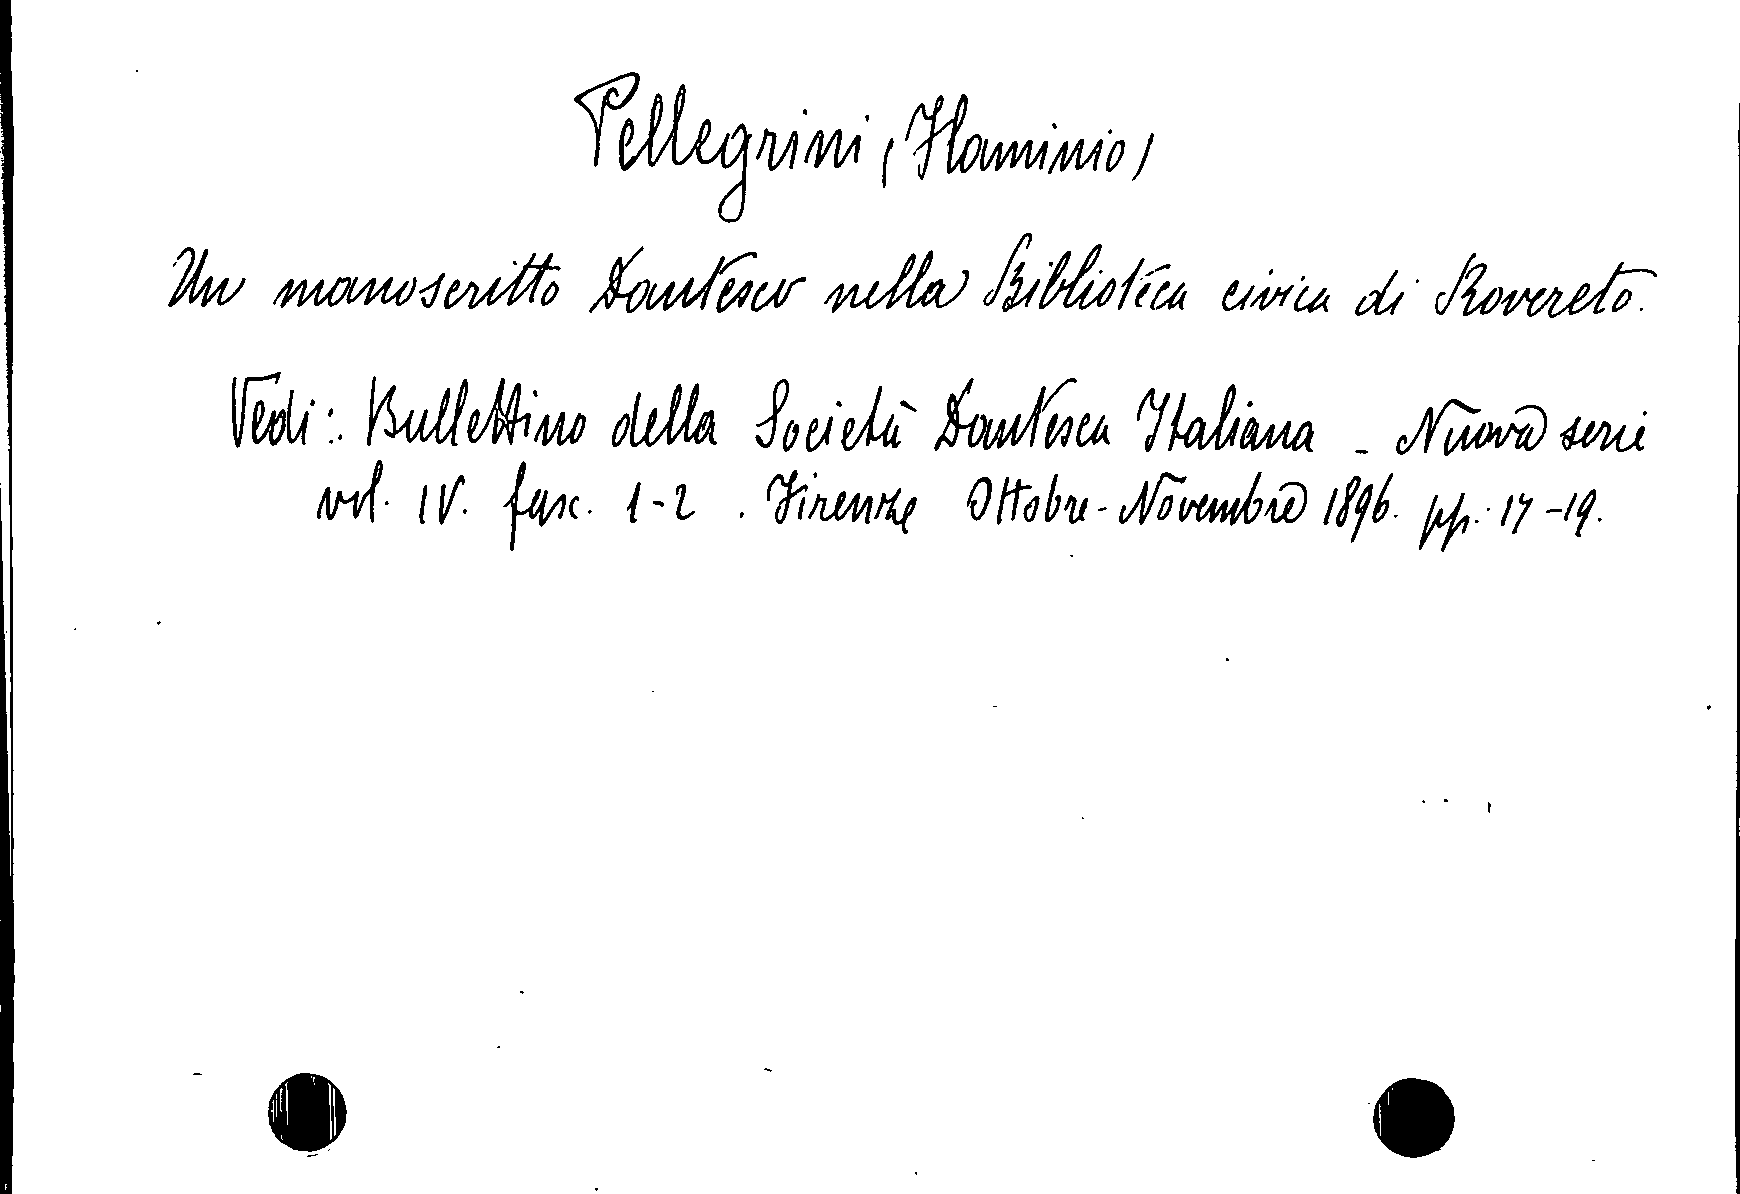 Pellegrini (Flaminio)
Un manoscritto Dantesco nella Biblioteca civica di Rovereto.
Vedi: Bullettino della Società Dantesca Italiana - Nuova serie
vol. IV. fasc. 1-2. Firenze Ottobre-Novembre 1896. pp. 17-19.